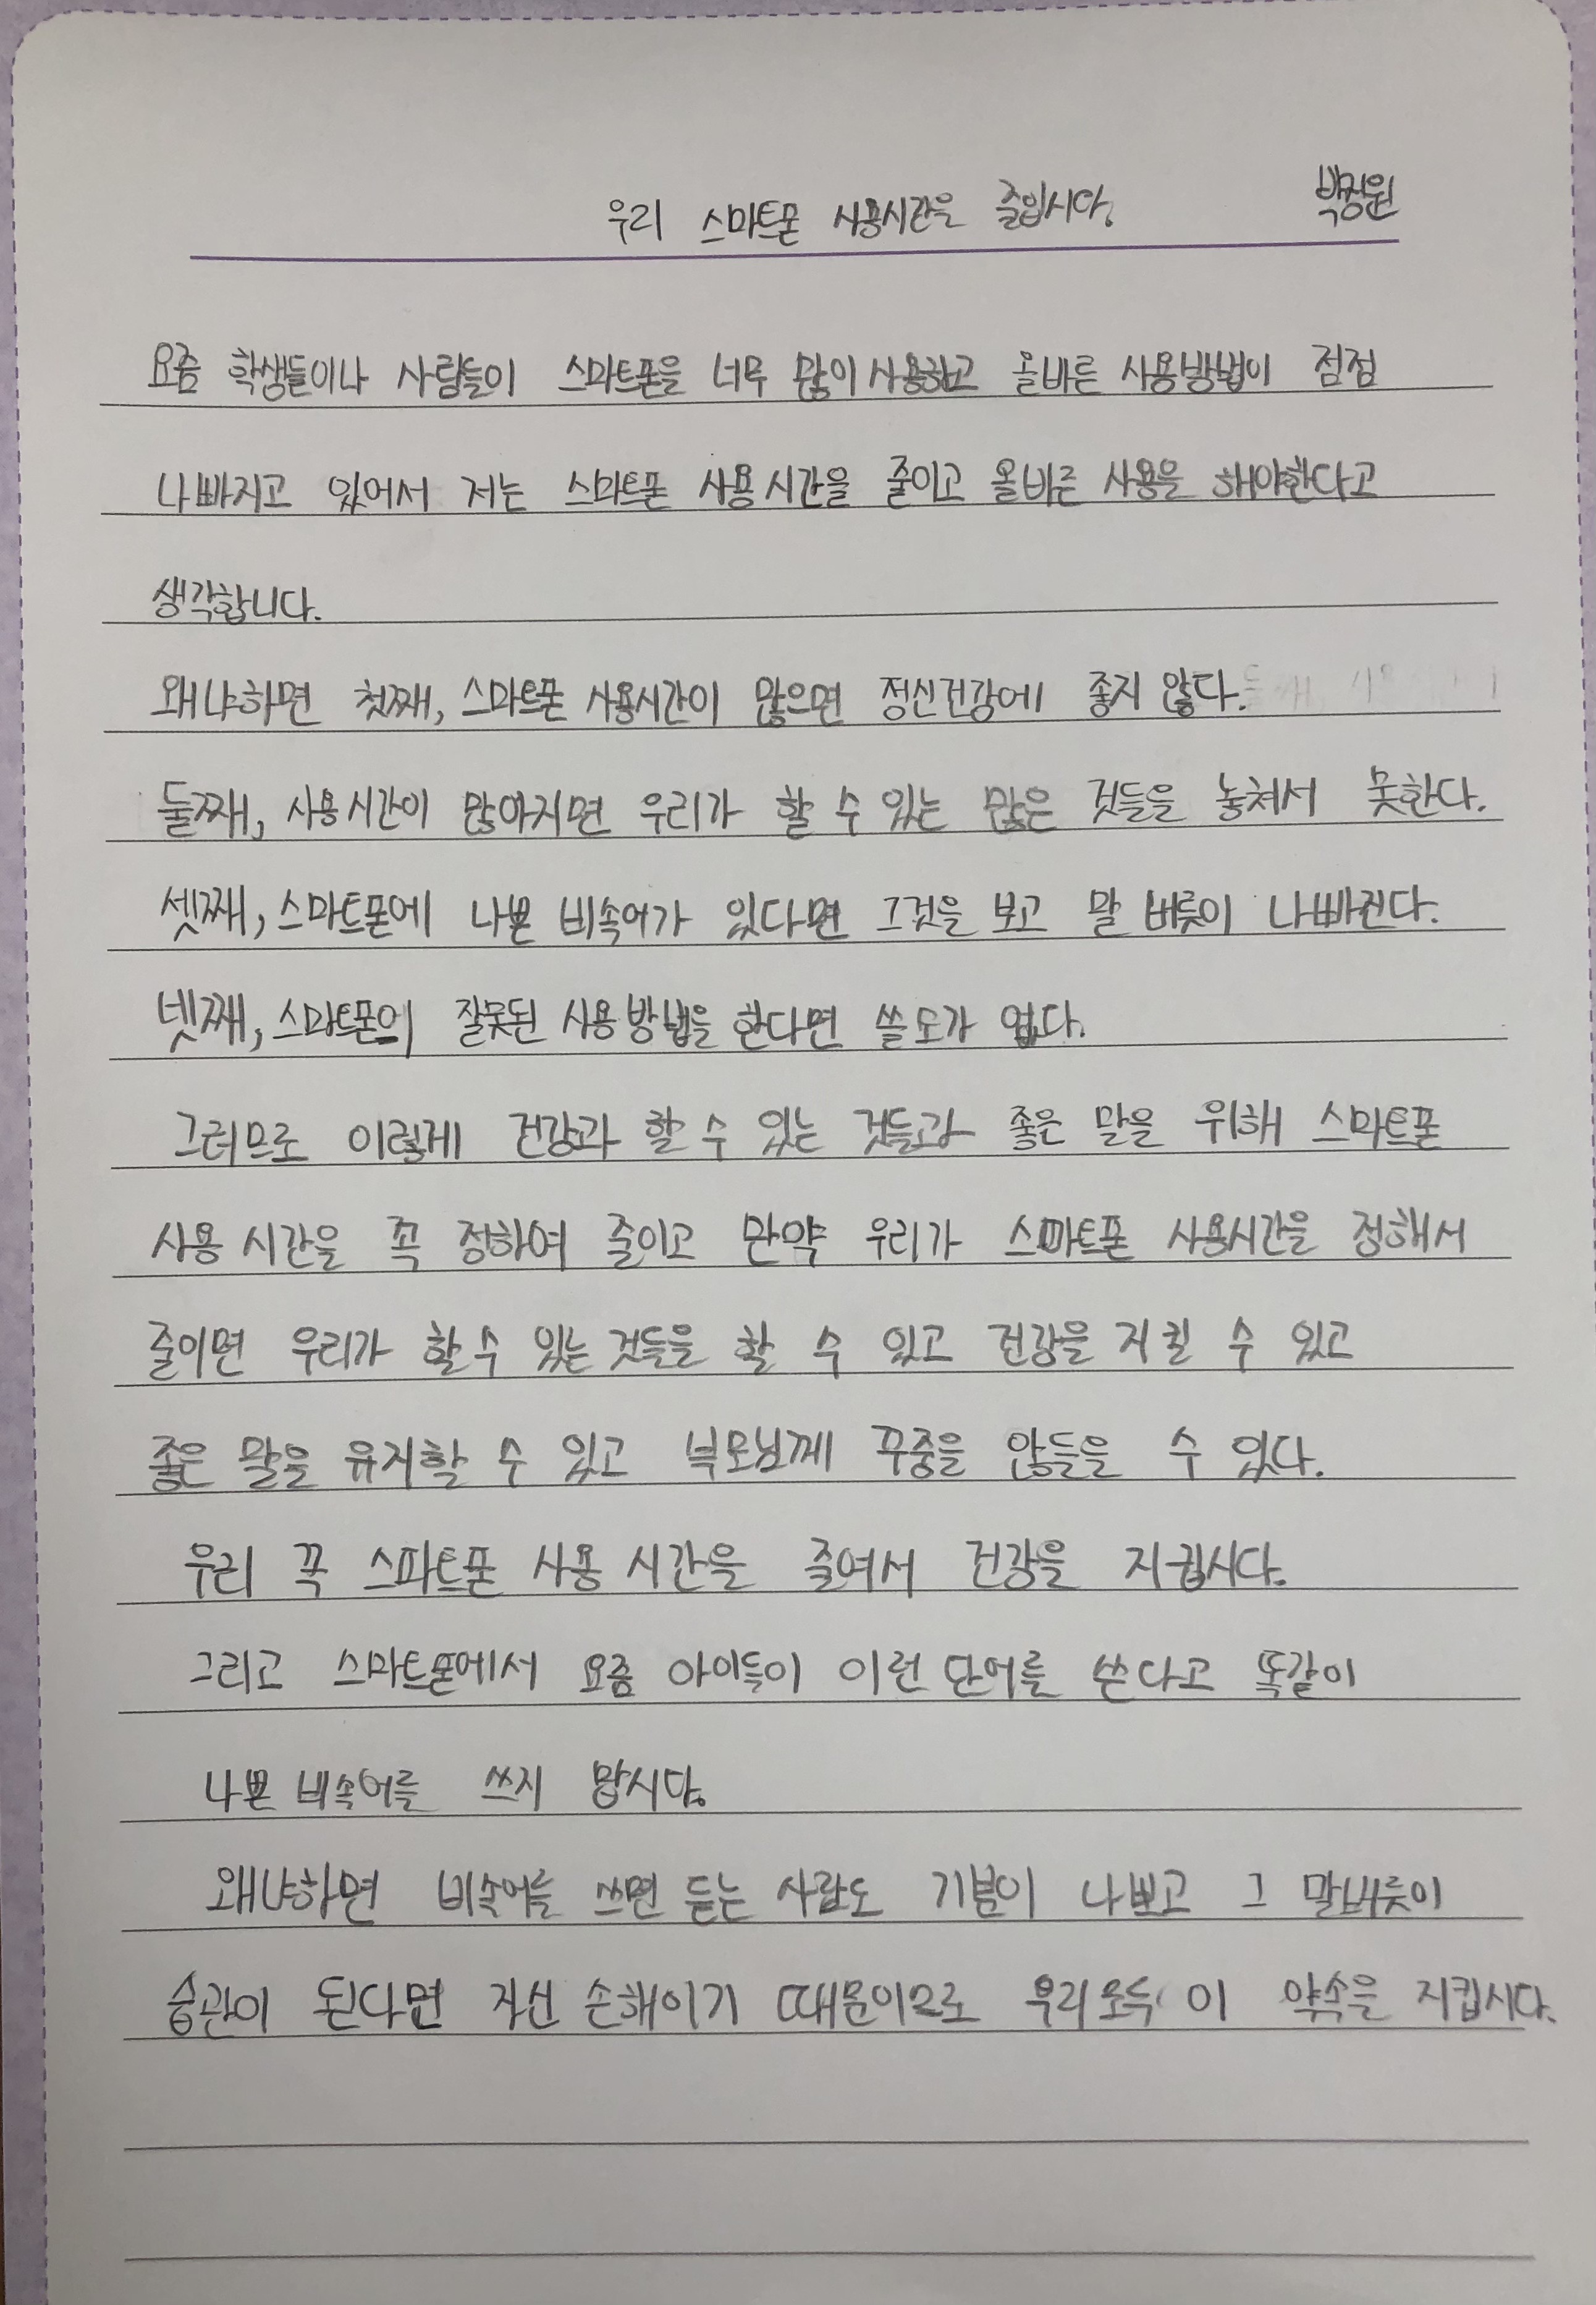 우리 스마트폰 사용시간을 줄입시다. 박정원
요즘 학생들이나 사람들이 스마트폰을 너무 많이 사용하고 올바른 사용방법이 점점
나빠지고 있어서 저는 스마트폰 사용시간을 줄이고 올바른 사용을 해야한다고
생각합니다.
왜냐하면 첫째, 스마트폰 사용시간이 많으면 정신건강에 좋지 않다.
둘째, 사용시간이 많아지면 우리가 할 수 있는 많은 것들을 놓쳐서 못한다.
셋째, 스마트폰에 나쁜 비속어가 있다면 그것을 보고 말 버릇이 나빠진다.
넷째, 스마트폰의 잘못된 사용방법을 한다면 쓸도가 없다.
그러므로 이렇게 건강과 할 수 있는 것들과 좋은 말을 위해 스마트폰
사용 시간을 꼭 정하여 줄이고 만약 우리가 스마트폰 사용시간을 정해서
줄이면 우리가 할 수 있는 것들을 할 수 있고 건강을 지킬 수 있고
좋은 말을 유지할 수 있고 부모님께 꾸중을 않들을 수 있다.
우리 꼭 스마트폰 사용 시간을 줄여서 건강을 지킵시다.
그리고 스마트폰에서 요즘 아이들이 이런 단어를 쓴다고 똑같이
나쁜 비속어를 쓰지 맙시다.
왜냐하면 비속어를 쓰면 듣는 사람도 기분이 나쁘고 그 말버릇이
습관이 된다면 자신 손해이기 때문이므로 우리모두 이 약속을 지킵시다.